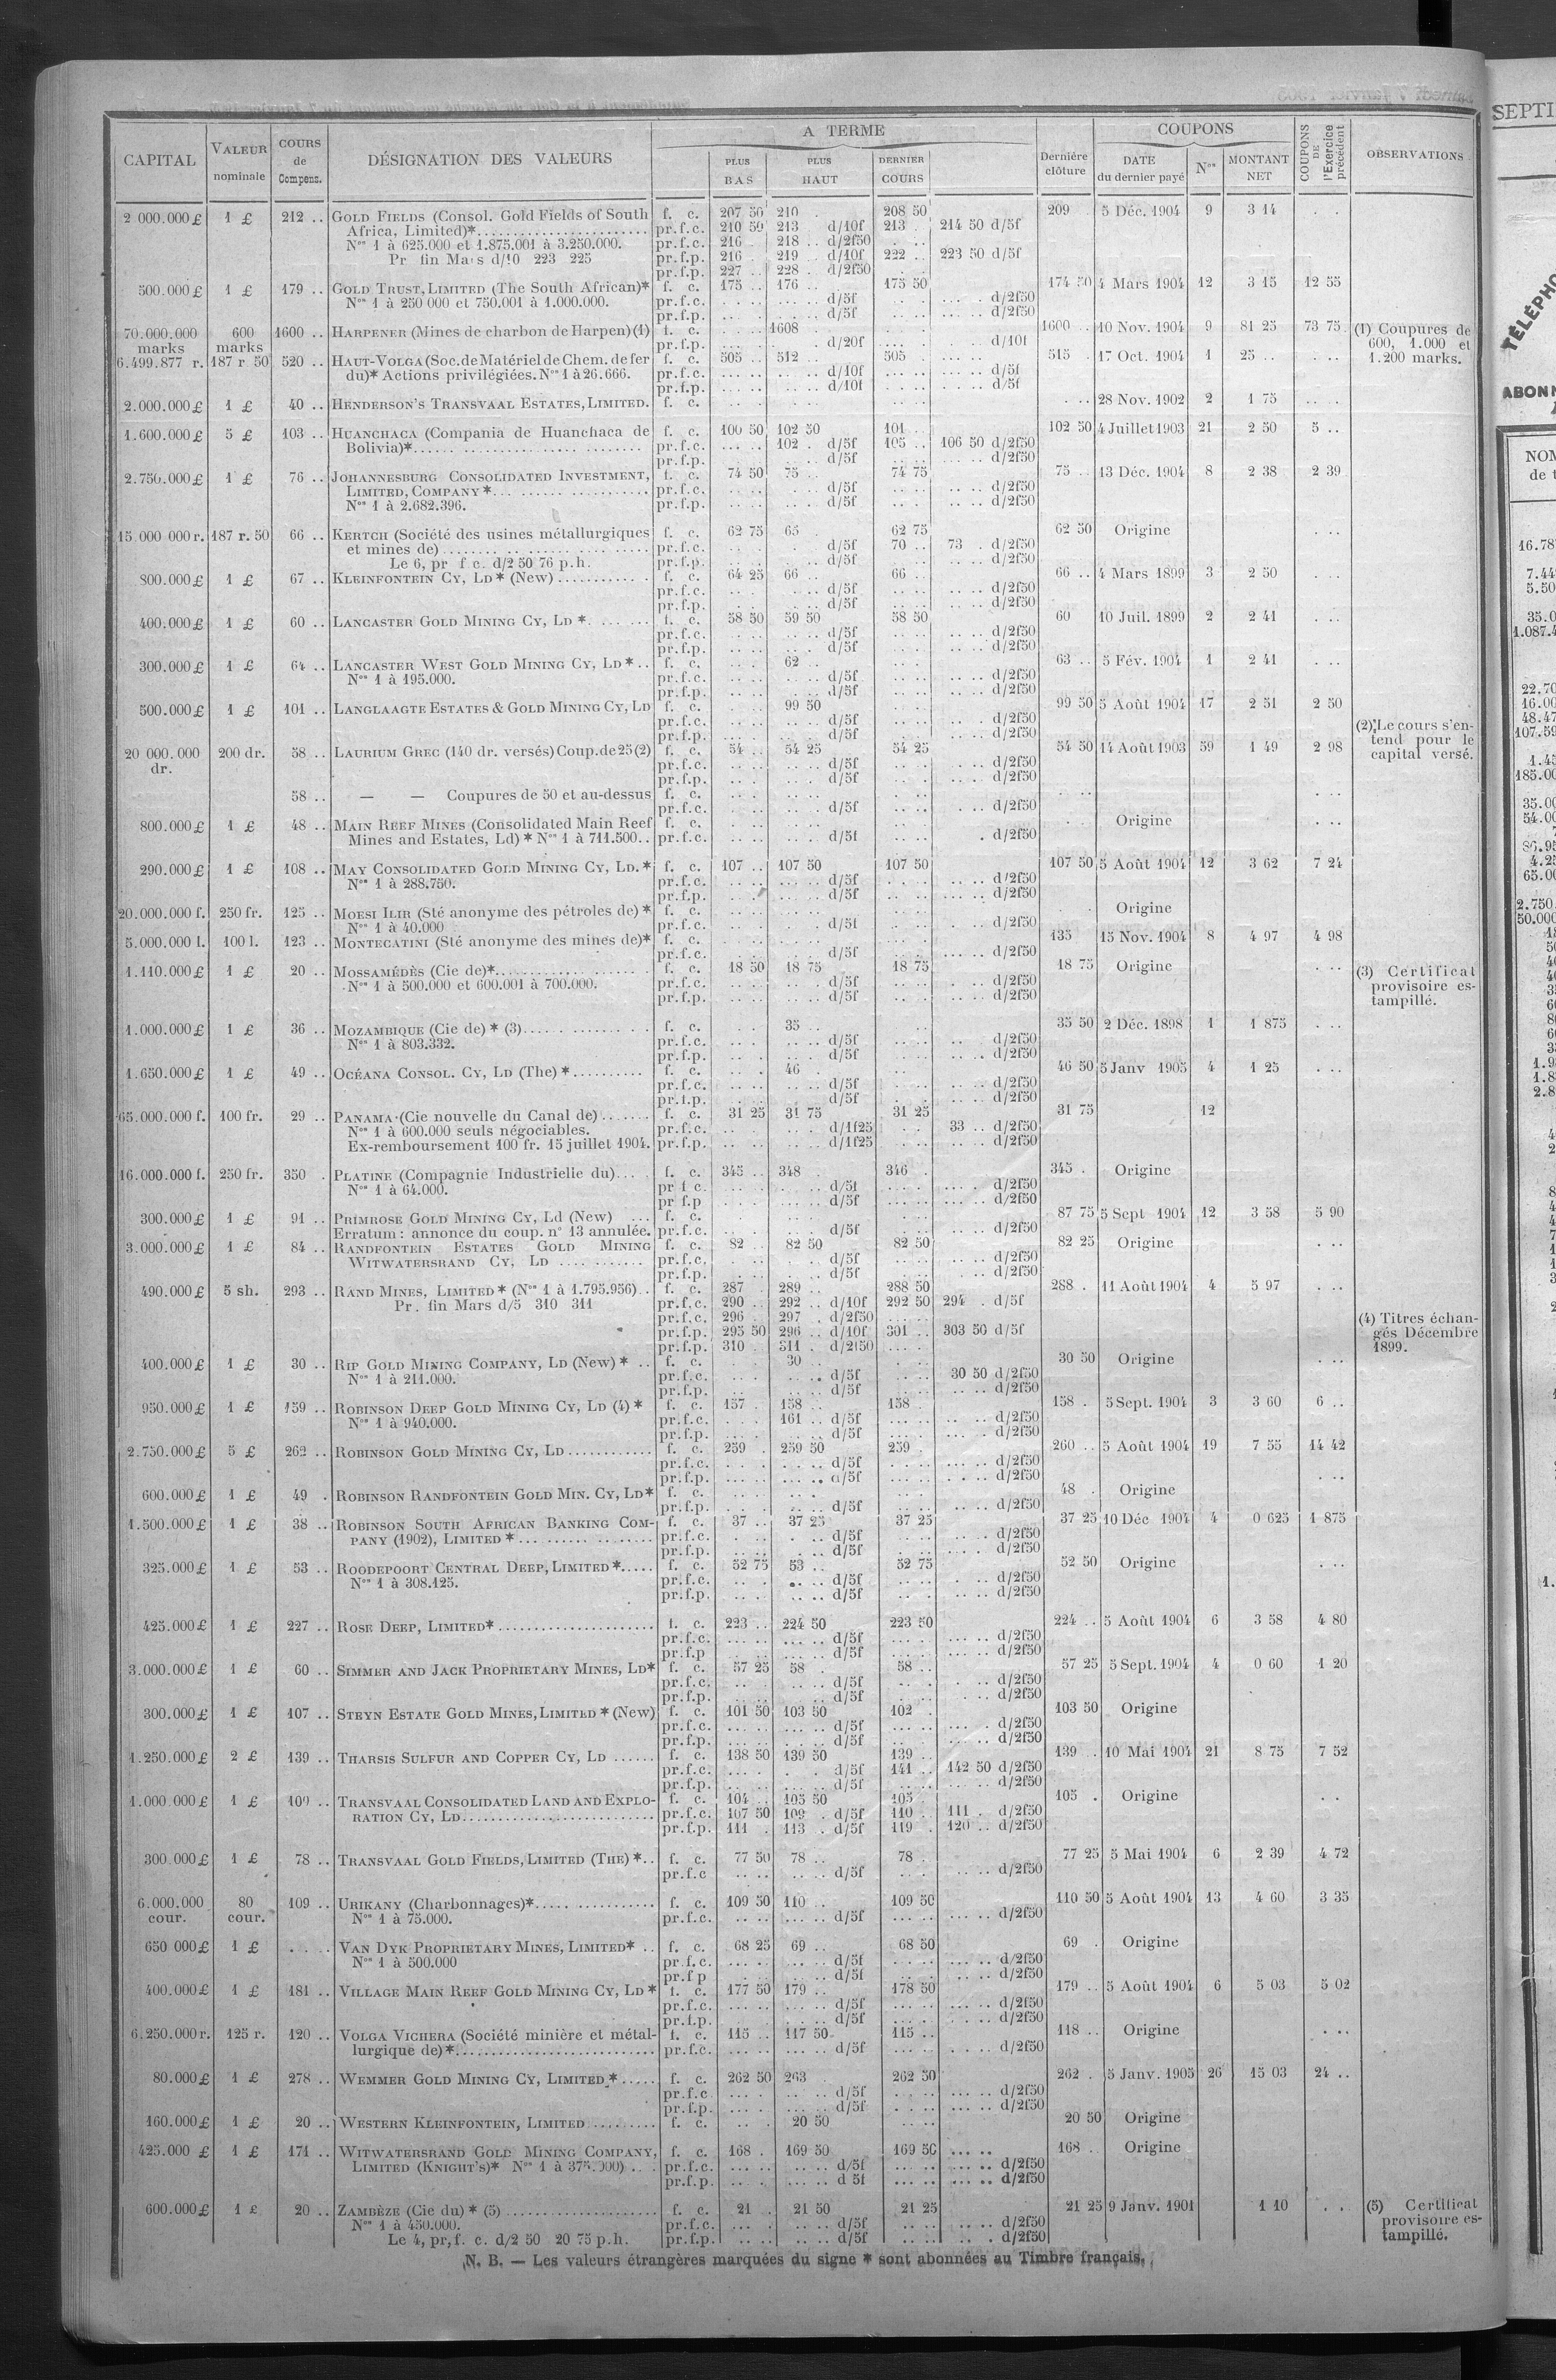 CAPITAL | VALEUR nominale | COURS de Compens. | DÉSIGNATION DES VALEURS | A TERME | PLUS BAS | PLUS HAUT | DERNIER COURS | Dernière clôture | COUPONS | DATE du dernier payé | Nos | MONTANT NET | COUPONS DE l'Exercice précédent | OBSERVATIONS
2 000.000 £ 1 £ 212 .. GOLD FIELDS (Consol. Gold Fields of South f. c. 207 50 210 . 208 50 209 5 Déc. 1904 9 3 14 . .
Africa, Limited)* pr.f.c. 210 50 213 d/10f 213 . 214 50 d/5f
Nos 1 à 625.000 et 1.875.001 à 3.250.000. pr.f.c. 216 218 .. d/2f50
Pr fin Mars d/10 223 225 pr.f.p. 216 . 219 .. d/10f 222 .. 223 50 d/5f
pr.f.p. 227 .. 228 . d/2f50
500.000 £ 1 £ 179 .. GOLD TRUST, LIMITED (The South African)* f. c. 175 .. 176 .. 175 50 174 50 4 Mars 1904 12 3 15 12 55
Nos 1 à 250 000 et 750.001 à 1.000.000. pr.f.c. d/5f d/2f50
pr.f.p. d/5f d/2f50
70.000.000 marks 600 marks 1600 .. HARPENER (Mines de charbon de Harpen) (1) f. c. 1608 1600 .. 10 Nov. 1904 9 81 25 73 75 (1) Coupures de
pr.f.p. d/20f d/10f 600, 1.000 et
6.499.877 r. 187 r 50 520 .. HAUT-VOLGA (Soc. de Matériel de Chem. de fer f. c. 505 .. 512 505 515 . 17 Oct. 1904 1 25 .. . .. 1.200 marks.
du)* Actions privilégiées. Nos 1 à 26.666. pr.f.c. d/10f d/5f
pr.f.p. d/10f d/5f
2.000.000 £ 1 £ 40 .. HENDERSON'S TRANSVAAL ESTATES, LIMITED. f. c. 28 Nov. 1902 2 1 75
1.600.000 £ 5 £ 103 .. HUANCHACA (Compania de Huanchaca de f. c. 100 50 102 50 101 .. 102 50 4 Juillet 1903 21 2 50 5 ..
Bolivia)* pr.f.c. 102 . d/5f 105 .. 106 50 d/2f50
pr.f.p. d/5f d/2f50
2.750.000 £ 1 £ 76 .. JOHANNESBURG CONSOLIDATED INVESTMENT, f. c. 74 50 75 .. 74 75 75 .. 13 Déc. 1904 8 2 38 2 39
LIMITED, COMPANY * pr.f.c. d/5f d/2f50
Nos 1 à 2.682.396. pr.f.p. d/5f d/2f50
15.000 000 r. 187 r. 50 66 .. KERTCH (Société des usines métallurgiques f. c. 62 75 65 . 62 75 62 50 Origine
et mines de) pr.f.c. d/5f 70 .. 73 . d/2f50
Le 6, pr f c. d/2 50 76 p.h. pr.f.p. d/5f d/2f50
1 £ 67 .. KLEINFONTEIN CY, LD * (New) f. c. 64 25 66 .. 66 .. 66 .. 4 Mars 1899 3 2 50
pr.f.c. d/5f d/2f50
pr.f.p. d/5f d/2f50
400.000 £ 1 £ 60 .. LANCASTER GOLD MINING CY, LD * f. c. 58 50 59 50 58 50 60 10 Juil. 1899 2 2 41
pr.f.c. d/5f d/2f50
pr.f.p. d/5f d/2f50
300.000 £ 1 £ 64 .. LANCASTER WEST GOLD MINING CY, LD * f. c. 62 .. 63 .. 5 Fév. 1904 1 2 41
Nos 1 à 195.000. pr.f.c. d/5f d/2f50
pr.f.p. d/5f d/2f50
500.000 £ 1 £ 101 .. LANGLAAGTE ESTATES & GOLD MINING CY, LD f. c. 99 50 99 50 5 Août 1904 17 2 51 2 50
pr.f.c. d/5f d/2f50 (2) Le cours s'en-
pr.f.p. d/5f d/2f50 tend pour le
20 000.000 dr. 200 dr. 58 .. LAURIUM GREC (140 dr. versés) Coup. de 25 (2) f. c. 54 .. 54 25 54 25 54 50 14 Août 1903 59 1 49 2 98 capital versé.
pr.f.c. d/5f d/2f50
pr.f.p. d/5f d/2f50
58 .. — — Coupures de 50 et au-dessus f. c.
pr.f.c. d/5f d/2f50
800.000 £ 1 £ 48 .. MAIN REEF MINES (Consolidated Main Reef f. c. Origine
Mines and Estates, Ld) * Nos 1 à 711.500 pr.f.c. d/5f d/2f50
290.000 £ 1 £ 108 .. MAY CONSOLIDATED GOLD MINING CY, LD. * f. c. 107 .. 107 50 107 50 107 50 5 Août 1904 12 3 62 7 24
Nos 1 à 288.750. pr.f.c. d/5f d/2f50
pr.f.p. d/5f d/2f50
20.000.000 f. 250 fr. 125 .. MOESI ILIR (Sté anonyme des pétroles de) * f. c. Origine
Nos 1 à 40.000 pr.f.c. d/5f d/2f50
5.000.000 l. 100 l. 123 .. MONTECATINI (Sté anonyme des mines de)* f. c. 135 15 Nov. 1904 8 4 97 4 98
pr.f.c. d/5f d/2f50
1.110.000 £ 1 £ 20 .. MOSSAMÉDÈS (Cie de)* f. c. 18 50 18 75 18 75 18 75 Origine (3) Certificat
Nos 1 à 500.000 et 600.001 à 700.000. pr.f.c. d/5f d/2f50 provisoire es-
pr.f.p. d/5f d/2f50 tampillé.
1.000.000 £ 1 £ 36 .. MOZAMBIQUE (Cie de) * (3) f. c. 35 .. 35 50 2 Déc. 1898 1 1 875
Nos 1 à 803.332. pr.f.c. d/5f d/2f50
pr.f.p. d/5f d/2f50
1.650.000 £ 1 £ 49 .. OCÉANA CONSOL. CY, LD (The) * f. c. 46 . 46 50 5 Janv 1905 4 1 25
pr.f.c. d/5f d/2f50
pr.f.p. d/5f d/2f50
65.000.000 f. 100 fr. 29 .. PANAMA (Cie nouvelle du Canal de) f. c. 31 25 31 75 31 25 31 75 12
Nos 1 à 600.000 seuls négociables. pr.f.c. d/1f25 33 .. d/2f50
Ex-remboursement 100 fr. 15 juillet 1904. pr.f.p. d/1f25 d/2f50
16.000.000 f. 250 fr. 350 . PLATINE (Compagnie Industrielle du) f. c. 345 .. 348 . 346 . 345 . Origine
Nos 1 à 64.000. pr f c. d/5f d/2f50
pr f.p d/5f d/2f50
300.000 £ 1 £ 91 .. PRIMROSE GOLD MINING CY, Ld (New) f. c. 87 75 5 Sept 1904 12 3 58 5 90
Erratum : annonce du coup. n° 13 annulée. pr.f.c. d/5f d/2f50
3.000.000 £ 1 £ 84 .. RANDFONTEIN ESTATES GOLD MINING f. c. 82 .. 82 50 82 50 82 25 Origine
WITWATERSRAND CY, LD pr.f.c. d/5f d/2f50
pr.f.p. d/5f d/2f50
490.000 £ 5 sh. 293 .. RAND MINES, LIMITED * (Nos 1 à 1.795.956) f. c. 287 . 289 .. 288 50 288 . 11 Août 1904 4 5 97
Pr. fin Mars d/5 310 311 pr.f.c. 290 .. 292 .. d/10f 292 50 294 . d/5f
pr.f.c. 296 .. 297 . d/2f50 (4) Titres échan-
pr.f.p. 295 50 296 .. d/10f 301 .. 303 50 d/5f gés Décembre
pr.f.p. 310 . 311 . d/2f50 1899.
400.000 £ 1 £ 30 .. RIP GOLD MINING COMPANY, LD (New) * f. c. 30 .. 30 50 Origine
Nos 1 à 211.000. pr.f.c. d/5f 30 50 d/2f50
pr.f.p. d/5f d/2f50
950.000 £ 1 £ 159 .. ROBINSON DEEP GOLD MINING CY, LD (4) * f. c. 157 . 158 .. 158 158 . 5 Sept. 1904 3 3 60 6 ..
Nos 1 à 940.000. pr.f.c. 161 .. d/5f d/2f50
pr.f.p. d/5f d/2f50
2.750.000 £ 5 £ 262 .. ROBINSON GOLD MINING CY, LD f. c. 259 . 259 50 259 . 260 .. 5 Août 1904 19 7 55 14 42
pr.f.c. d/5f d/2f50
pr.f.p. d/5f d/2f50
600.000 £ 1 £ 49 . ROBINSON RANDFONTEIN GOLD MIN. CY, LD* f. c. 48 . Origine
pr.f.p. d/5f d/2f50
1.500.000 £ 1 £ 38 .. ROBINSON SOUTH AFRICAN BANKING COM- f. c. 37 .. 37 25 37 25 37 25 10 Déc. 1904 4 0 625 1 875
PANY (1902), LIMITED * pr.f.c. d/5f d/2f50
pr.f.p. d/5f d/2f50
325.000 £ 1 £ 53 .. ROODEPOORT CENTRAL DEEP, LIMITED * f. c. 52 75 53 .. 52 75 52 50 Origine
Nos 1 à 308.125. pr.f.c. d/5f d/2f50
pr.f.p. d/5f d/2f50
425.000 £ 1 £ 227 .. ROSE DEEP, LIMITED* f. c. 223 .. 224 50 223 50 224 .. 5 Août 1904 6 3 58 4 80
pr.f.c. d/5f d/2f50
pr.f.p d/5f d/2f50
3.000.000 £ 1 £ 60 .. SIMMER AND JACK PROPRIETARY MINES, LD* f. c. 57 25 58 . 58 .. 57 25 5 Sept. 1904 4 0 60 1 20
pr.f.c. d/5f d/2f50
pr.f.p. d/5f d/2f50
300.000 £ 1 £ 107 .. STEYN ESTATE GOLD MINES, LIMITED * (New) f. c. 101 50 103 50 102 . 103 50 Origine
pr.f.c. d/5f d/2f50
pr.f.p. d/5f d/2f50
1.250.000 £ 2 £ 139 .. THARSIS SULFUR AND COPPER CY, LD f. c. 138 50 139 50 139 .. 139 .. 10 Mai 1904 21 8 75 7 52
pr.f.c. d/5f 141 .. 142 50 d/2f50
pr.f.p. d/5f d/2f50
1.000.000 £ 1 £ 109 .. TRANSVAAL CONSOLIDATED LAND AND EXPLO- f. c. 104 .. 105 50 105 . 105 . Origine
RATION CY, LD pr.f.c. 107 50 109 . d/5f 110 . 111 . d/2f50
pr.f.p. 111 . 113 . d/5f 119 . 120 .. d/2f50
300.000 £ 1 £ 78 .. TRANSVAAL GOLD FIELDS, LIMITED (THE) * f. c. 77 50 78 .. 78 . 77 25 5 Mai 1904 6 2 39 4 72
pr.f.c d/5f d/2f50
6.000.000 cour. 80 cour. 109 .. URIKANY (Charbonnages)* f. c. 109 50 110 .. 109 50 110 50 5 Août 1904 13 4 60 3 35
Nos 1 à 75.000. pr.f.c. d/5f d/2f50
650 000 £ 1 £ VAN DYK PROPRIETARY MINES, LIMITED* f. c. 68 25 69 .. 68 50 69 . Origine
Nos 1 à 500.000 pr.f.c. d/5f d/2f50
pr.f p d/5f d/2f50
400.000 £ 1 £ 181 .. VILLAGE MAIN REEF GOLD MINING CY, LD * f. c. 177 50 179 .. 178 50 179 .. 5 Août 1904 6 5 03 5 02
pr.f.c. d/5f d/2f50
pr.f.p. d/5f d/2f50
6.250.000 r. 125 r. 120 .. VOLGA VICHERA (Société minière et métal- f. c. 115 .. 117 50 115 .. 118 .. Origine
lurgique de)* pr.f.c. d/5f d/2f50
80.000 £ 1 £ 278 .. WEMMER GOLD MINING CY, LIMITED * f. c. 262 50 263 262 50 262 . 5 Janv. 1905 26 15 03 24 ..
pr.f.c d/5f d/2f50
pr.f.p. d/5f d/2f50
160.000 £ 1 £ 20 .. WESTERN KLEINFONTEIN, LIMITED f. c. 20 50 20 50 Origine
425.000 £ 1 £ 171 .. WITWATERSRAND GOLD MINING COMPANY, f. c. 168 . 169 50 169 50 168 .. Origine
LIMITED (KNIGHT'S)* Nos 1 à 375.000) pr.f.c. d/5f d/2f50
pr.f.p. d 5f d/2f50
600.000 £ 1 £ 20 .. ZAMBÈZE (Cie du) * (5) f. c. 21 .. 21 50 21 25 21 25 9 Janv. 1901 1 10 (5) Certificat
Nos 1 à 450.000. pr.f.c. d/5f d/2f50 provisoire es-
Le 4, pr, f. c. d/2 50 20 75 p.h. pr.f.p. d/5f d/2f50 tampillé.
N. B. — Les valeurs étrangères marquées du signe * sont abonnées au Timbre français.
SEPTI
ABONN
NOM
de t